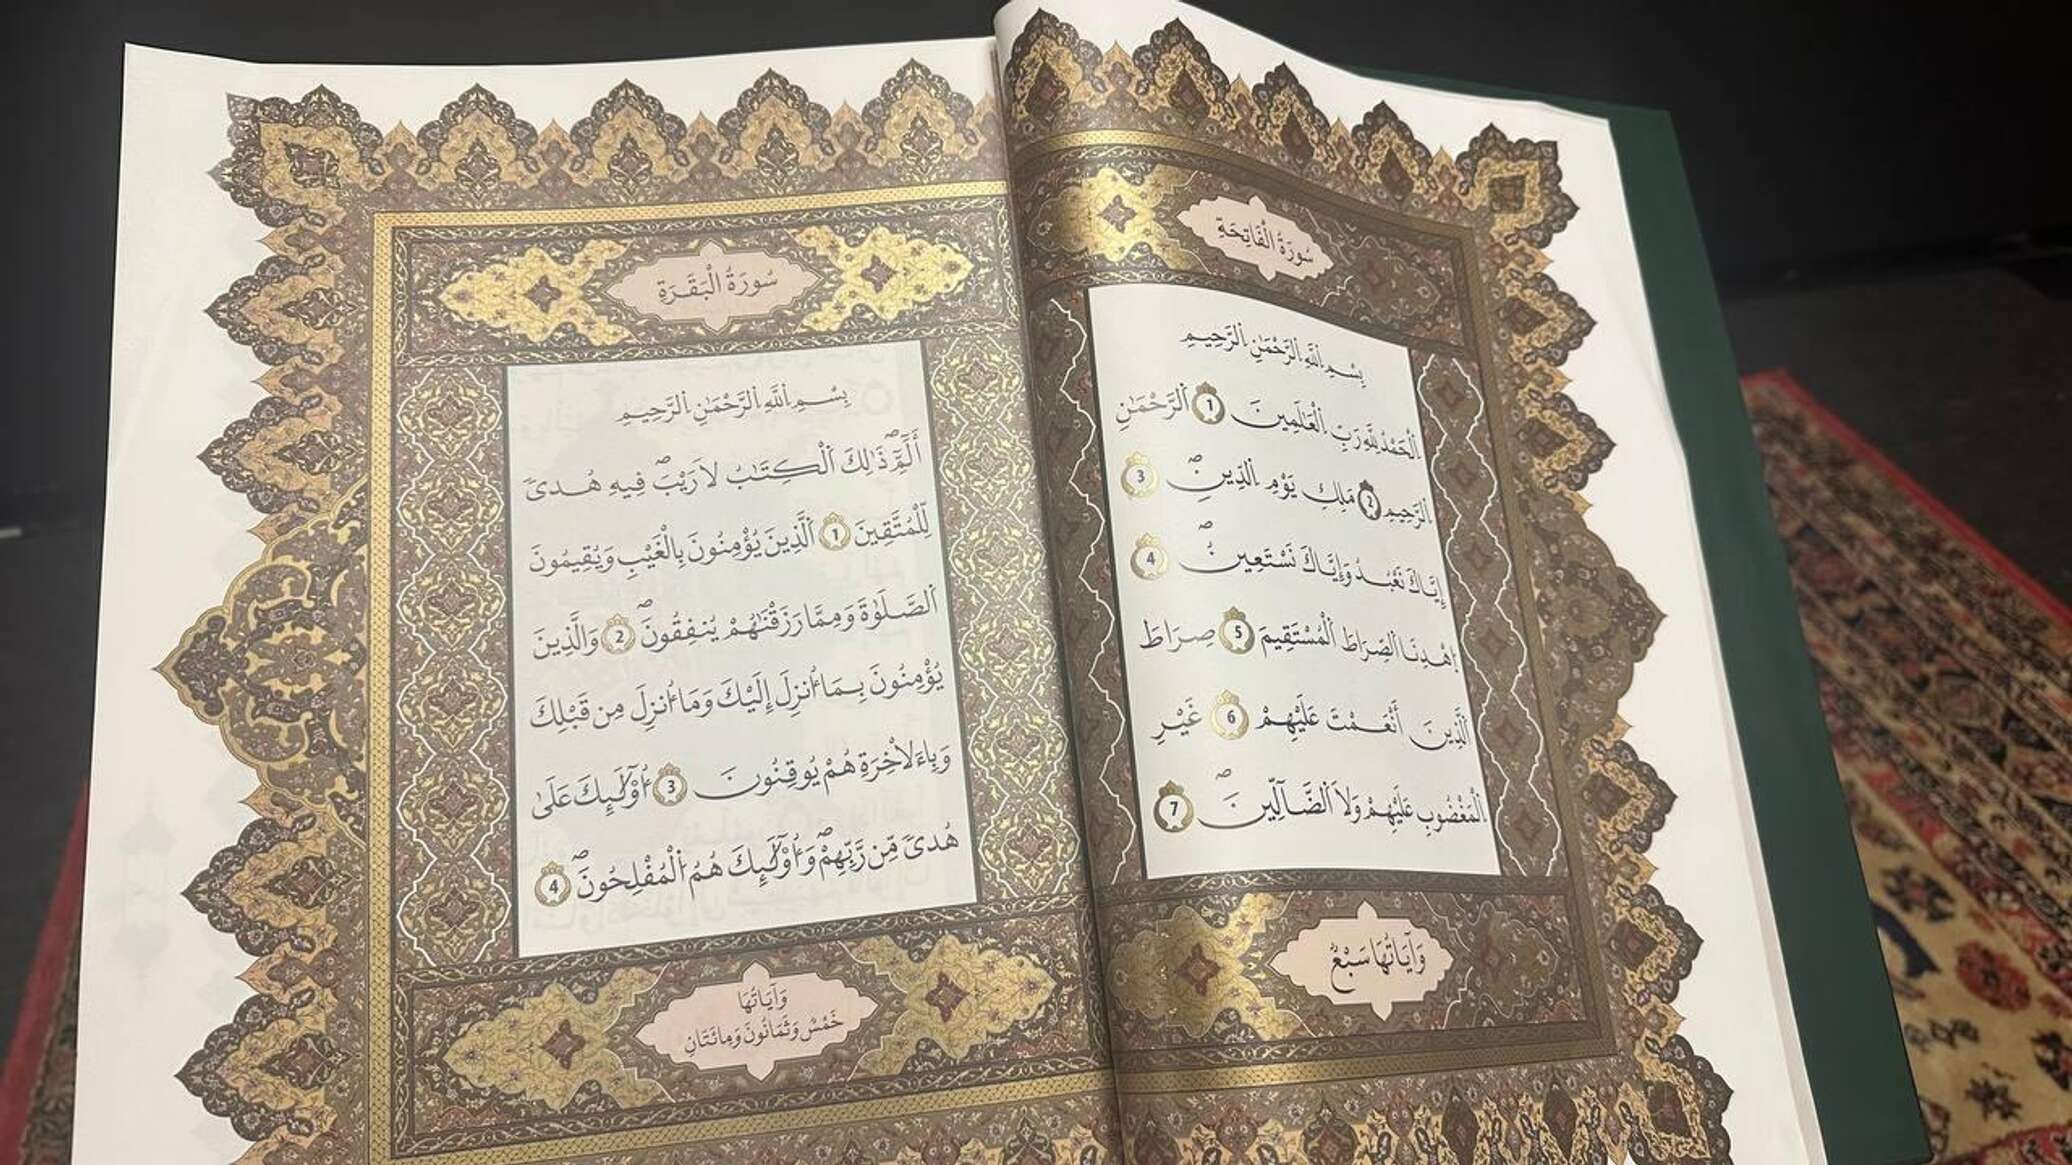 سُورَةُ الْفَاتِحَةِ
بِسْمِ اِ۬للَّهِ اِ۬لرَّحْمَٰنِ اِ۬لرَّحِيمِ
اِ۬لْحَمْدُ لِلَّهِ رَبِّ اِ۬لْعَٰلَمِينَ 1 اَ۬لرَّحْمَٰنِ
اِ۬لرَّحِيمِ 2 مَلِكِ يَوْمِ اِ۬لدِّينِۖ 3
إِيَّاكَ نَعْبُدُ وَإِيَّاكَ نَسْتَعِينُۖ 4
اِ۪هْدِنَا اَ۬لصِّرَٰطَ اَ۬لْمُسْتَقِيمَ 5 صِرَٰطَ
اَ۬لَّذِينَ أَنْعَمْتَ عَلَيْهِمْ 6 غَيْرِ
اِ۬لْمَغْضُوبِ عَلَيْهِمْ وَلَا اَ۬لضَّآلِّينَۖ 7
وَآيَاتُهَا سَبْعٌ
سُورَةُ الْبَقَرَةِ
بِسْمِ اِ۬للَّهِ اِ۬لرَّحْمَٰنِ اِ۬لرَّحِيمِ
أَلَٓمِّٓۖ ذَٰلِكَ اَ۬لْكِتَٰبُ لَا رَيْبَۖ فِيهِ هُدىٗ
لِّلْمُتَّقِينَ 1 اَ۬لَّذِينَ يُؤْمِنُونَ بِالْغَيْبِ وَيُقِيمُونَ
اَ۬لصَّلَوٰةَ وَمِمَّا رَزَقْنَٰهُمْ يُنفِقُونَۖ 2 وَالَّذِينَ
يُؤْمِنُونَ بِمَا أُنزِلَ إِلَيْكَ وَمَا أُنزِلَ مِن قَبْلِكَ
وَبِالَاخِرَةِ هُمْ يُوقِنُونَ 3 أُوْلَٰٓئِكَ عَلَىٰ
هُدىٗ مِّن رَّبِّهِمْۖ وَأُوْلَٰٓئِكَ هُمُ اُ۬لْمُفْلِحُونَۖ 4
وَآيَاتُهَا
خَمْسٌ وَثَمَانُونَ وَمِائَتَانِ